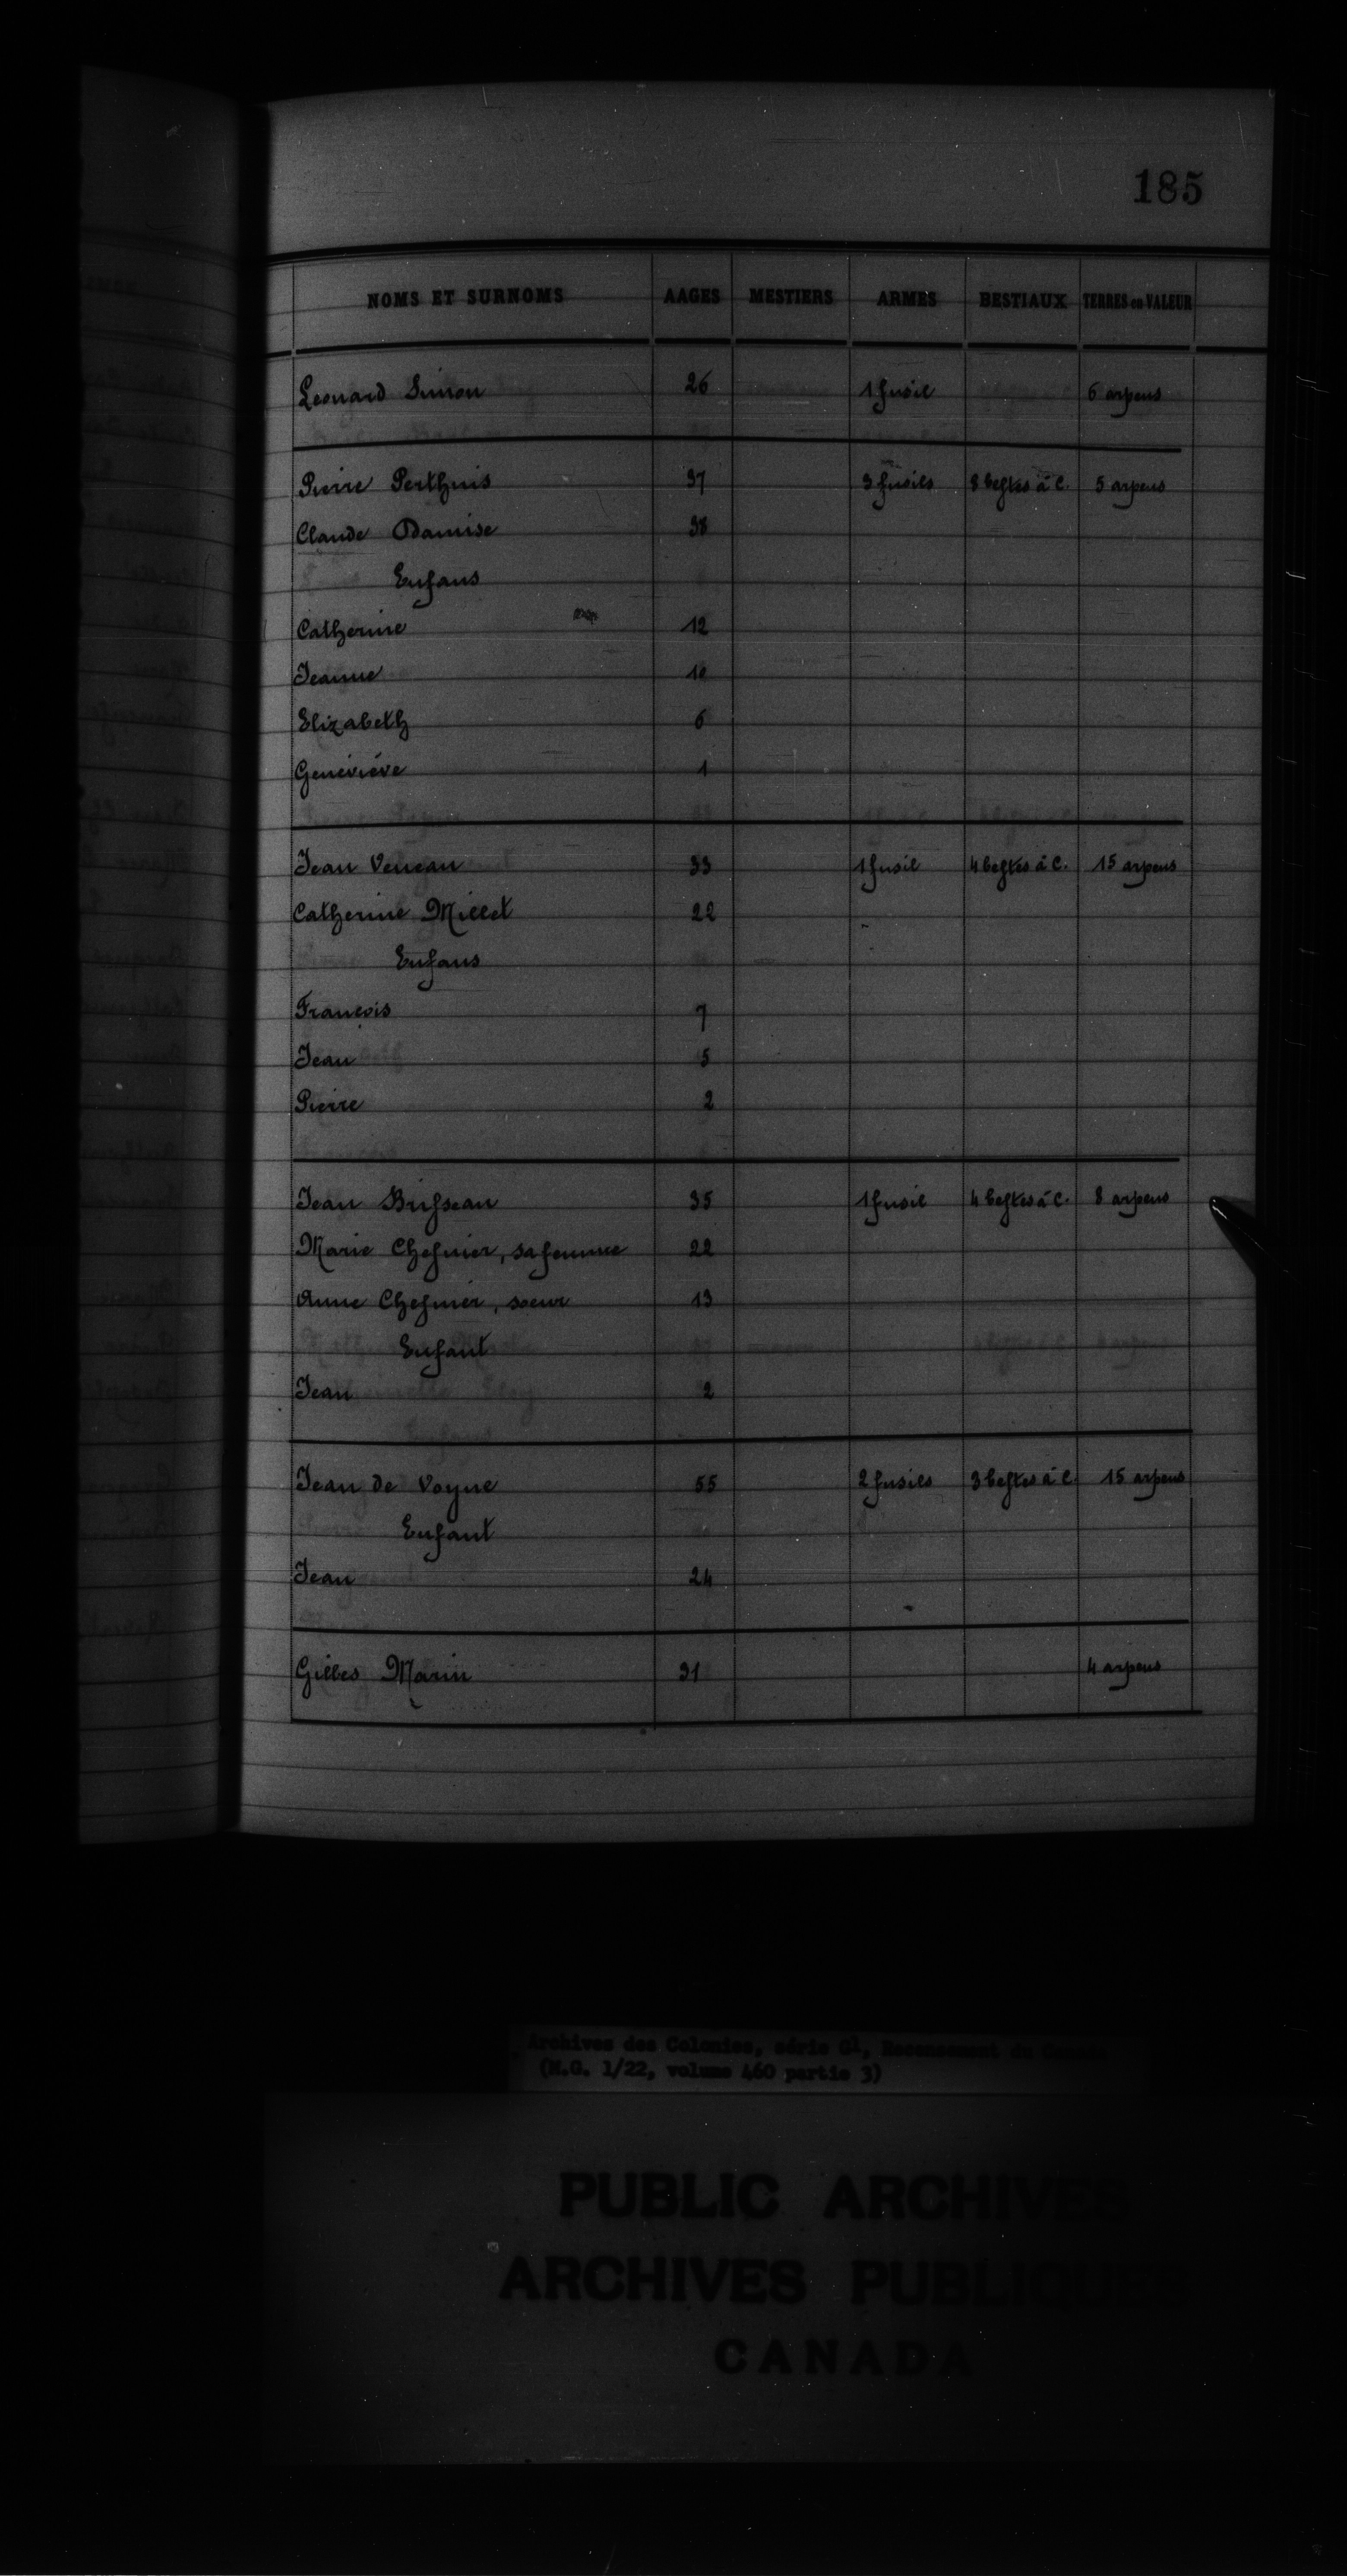 185
NOMS ET SURNOMS AAGES MESTIERS ARMES BESTIAUX TERRES en VALEUR
Leonard Simon 26 1 fusil 6 arpens
Pierre Perthuis 37 3 fusils 8 bestes à C. 5 arpens
Claude Damise 38
Enfans
Catherine 12
Jeanne 10
Elizabeth 6
Geneviève 1
Jean Veneau 33 1 fusil 4 bestes à C. 15 arpens
Catherine Millet 22
Enfans
Francois 7
Jean 5
Pierre 2
Jean Brisseau 35 1 fusil 4 bestes à C. 8 arpens
Marie Chesnier, sa femme 22
Anne Chesnier, soeur 13
Enfant
Jean 2
Jean de Voyne 55 2 fusils 3 bestes à C. 15 arpens
Enfant
Jean 24
Gilles Marin 31 4 arpens
Archives des Colonies, série G1, Recensement du Canada
(M.G. 1/22, volume 460 partie 3)
PUBLIC ARCHIVES
ARCHIVES PUBLIQUES
CANADA